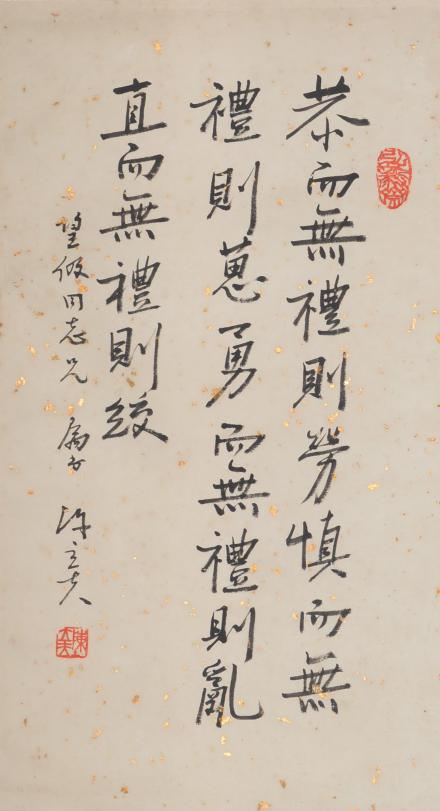 恭而無禮則勞慎而無
禮則葸勇而無禮則亂
直而無禮則絞
望同志兄 屬書 陳立夫
陳立夫